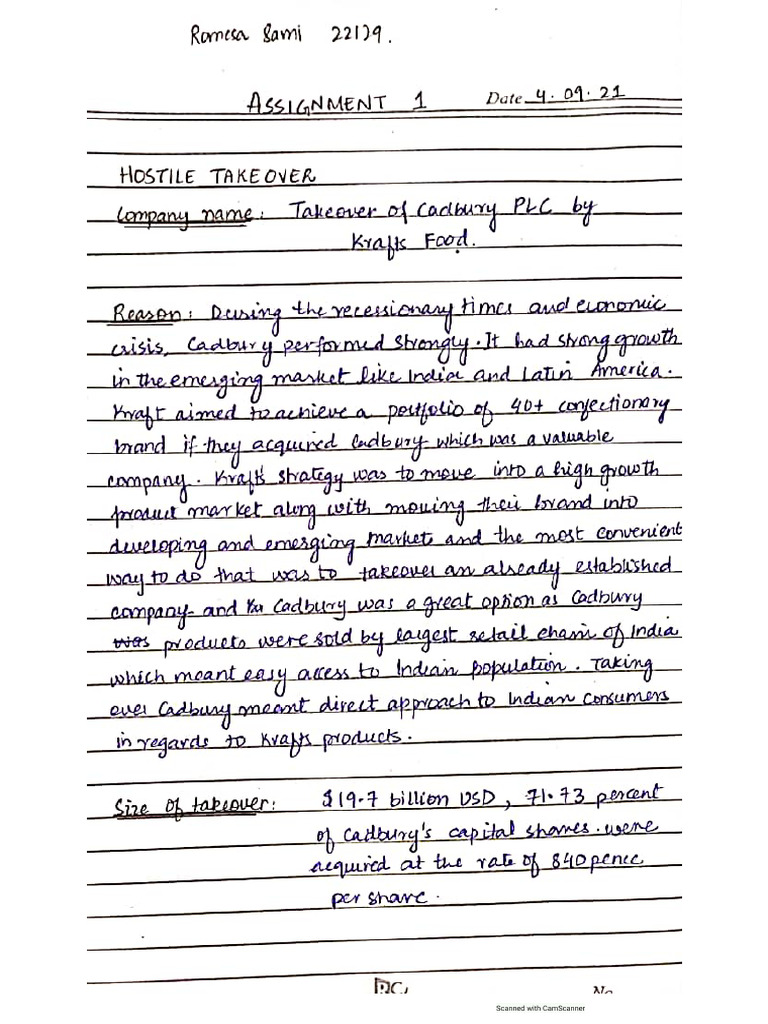 Romesa Sami 22129.
ASSIGNMENT 1 Date 4.09.21
HOSTILE TAKEOVER
Company name: Takeover of Cadbury PLC by
Krafts Food.
Reason: During the recessionary times and economic
crisis, Cadbury performed strongly. It had strong growth
in the emerging market like India and Latin America.
Kraft aimed to achieve a portfolio of 40+ confectionary
brand if they acquired Cadbury which was a valuable
company. Kraft's strategy was to move into a high growth
product market along with moving their brand into
developing and emerging markets and the most convenient
way to do that was to takeover an already established
company and Cadbury was a great option as Cadbury
was products were sold by largest retail chain of India
which meant easy access to Indian population. Taking
over Cadbury meant direct approach to Indian consumers
in regards to Krafts products.
Size of takeover: $19.7 billion USD, 71.73 percent
of Cadbury's capital shares were
acquired at the rate of 840 pence
per share.
Scanned with CamScanner